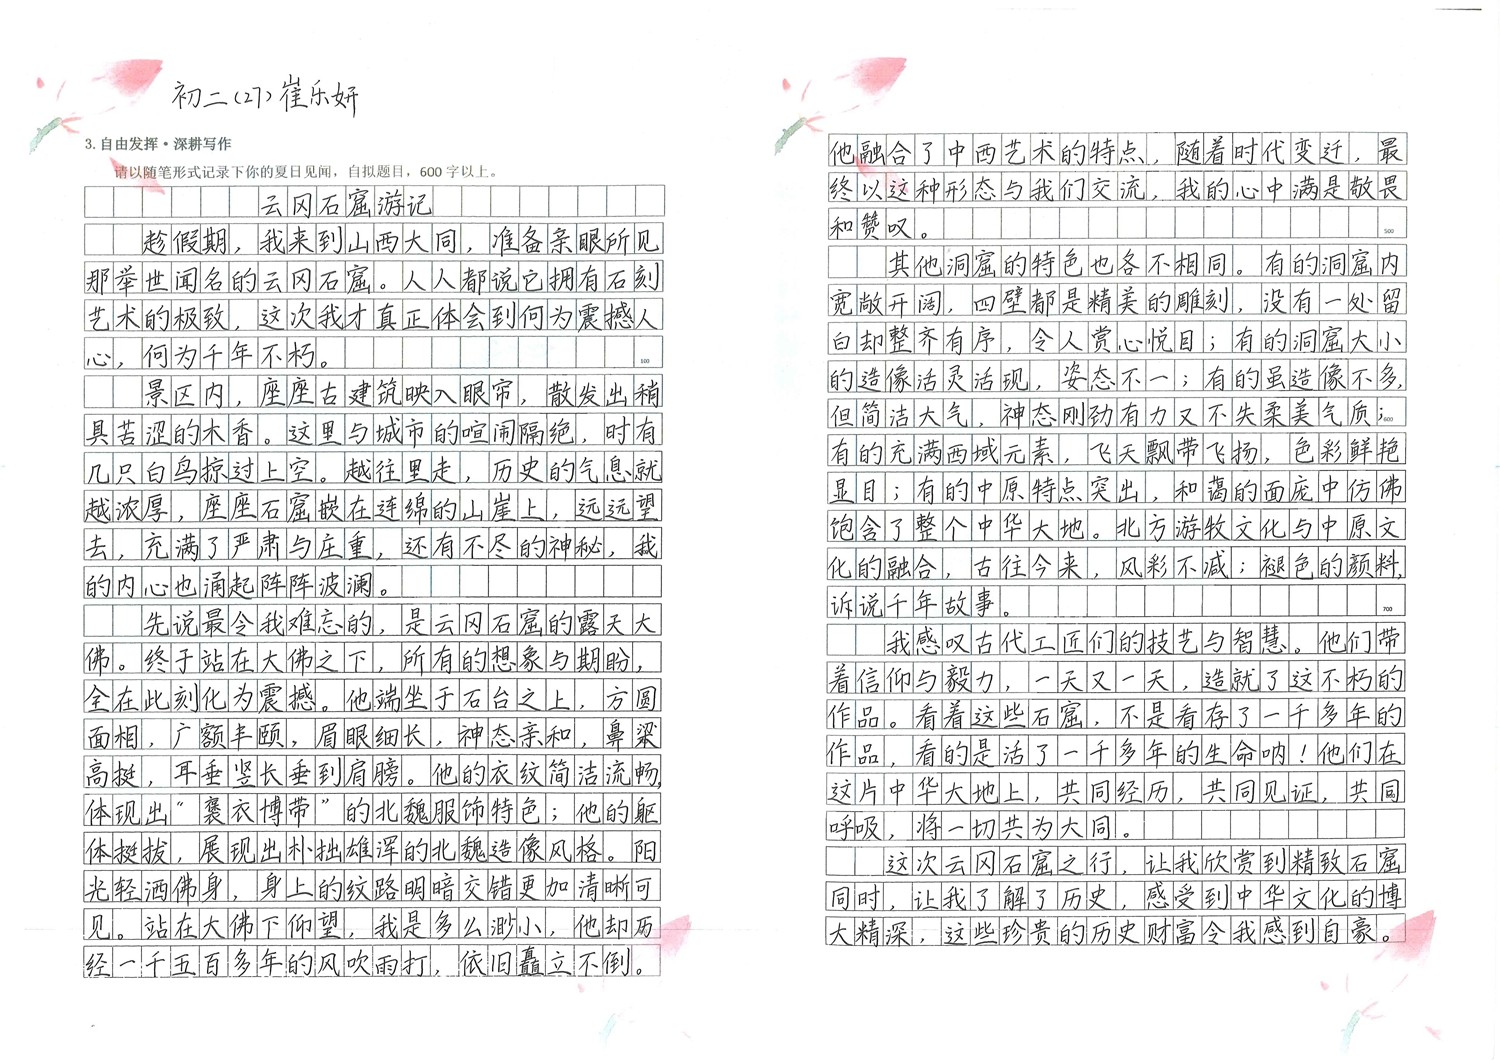 初二(27)崔乐妍
3. 自由发挥·深耕写作
请以随笔形式记录下你的夏日见闻，自拟题目，600字以上。
云冈石窟游记
趁假期，我来到山西大同，准备亲眼所见
那举世闻名的云冈石窟。人人都说它拥有石刻
艺术的极致，这次我才真正体会到何为震撼人
心，何为千年不朽。
100
景区内，座座古建筑映入眼帘，散发出稍
具苦涩的木香。这里与城市的喧闹隔绝，时有
几只白鸟掠过上空。越往里走，历史的气息就
越浓厚，座座石窟嵌在连绵的山崖上，远远望
去，充满了严肃与庄重，还有不尽的神秘，我
的内心也涌起阵阵波澜。
先说最令我难忘的，是云冈石窟的露天大
佛。终于站在大佛之下，所有的想象与期盼，
全在此刻化为震撼。他端坐于石台之上，方圆
面相，广额丰颐，眉眼细长，神态亲和，鼻梁
高挺，耳垂竖长垂到肩膀。他的衣纹简洁流畅，
体现出“褒衣博带”的北魏服饰特色；他的躯
体挺拔，展现出朴拙雄浑的北魏造像风格。阳
光轻洒佛身，身上的纹路明暗交错更加清晰可
见。站在大佛下仰望，我是多么渺小，他却历
经一千五百多年的风吹雨打，依旧矗立不倒。
他融合了中西艺术的特点，随着时代变迁，最
终以这种形态与我们交流，我的心中满是敬畏
和赞叹。
500
其他洞窟的特色也各不相同。有的洞窟内
宽敞开阔，四壁都是精美的雕刻，没有一处留
白却整齐有序，令人赏心悦目；有的洞窟大小
的造像活灵活现，姿态不一；有的虽造像不多，
但简洁大气，神态刚劲有力又不失柔美气质；
600
有的充满西域元素，飞天飘带飞扬，色彩鲜艳
显目；有的中原特点突出，和蔼的面庞中仿佛
饱含了整个中华大地。北方游牧文化与中原文
化的融合，古往今来，风彩不减；褪色的颜料，
诉说千年故事。
700
我感叹古代工匠们的技艺与智慧。他们带
着信仰与毅力，一天又一天，造就了这不朽的
作品。看着这些石窟，不是看存了一千多年的
作品，看的是活了一千多年的生命呐！他们在
这片中华大地上，共同经历，共同见证，共同
呼吸，将一切共为大同。
这次云冈石窟之行，让我欣赏到精致石窟
同时，让我了解了历史，感受到中华文化的博
大精深，这些珍贵的历史财富令我感到自豪。